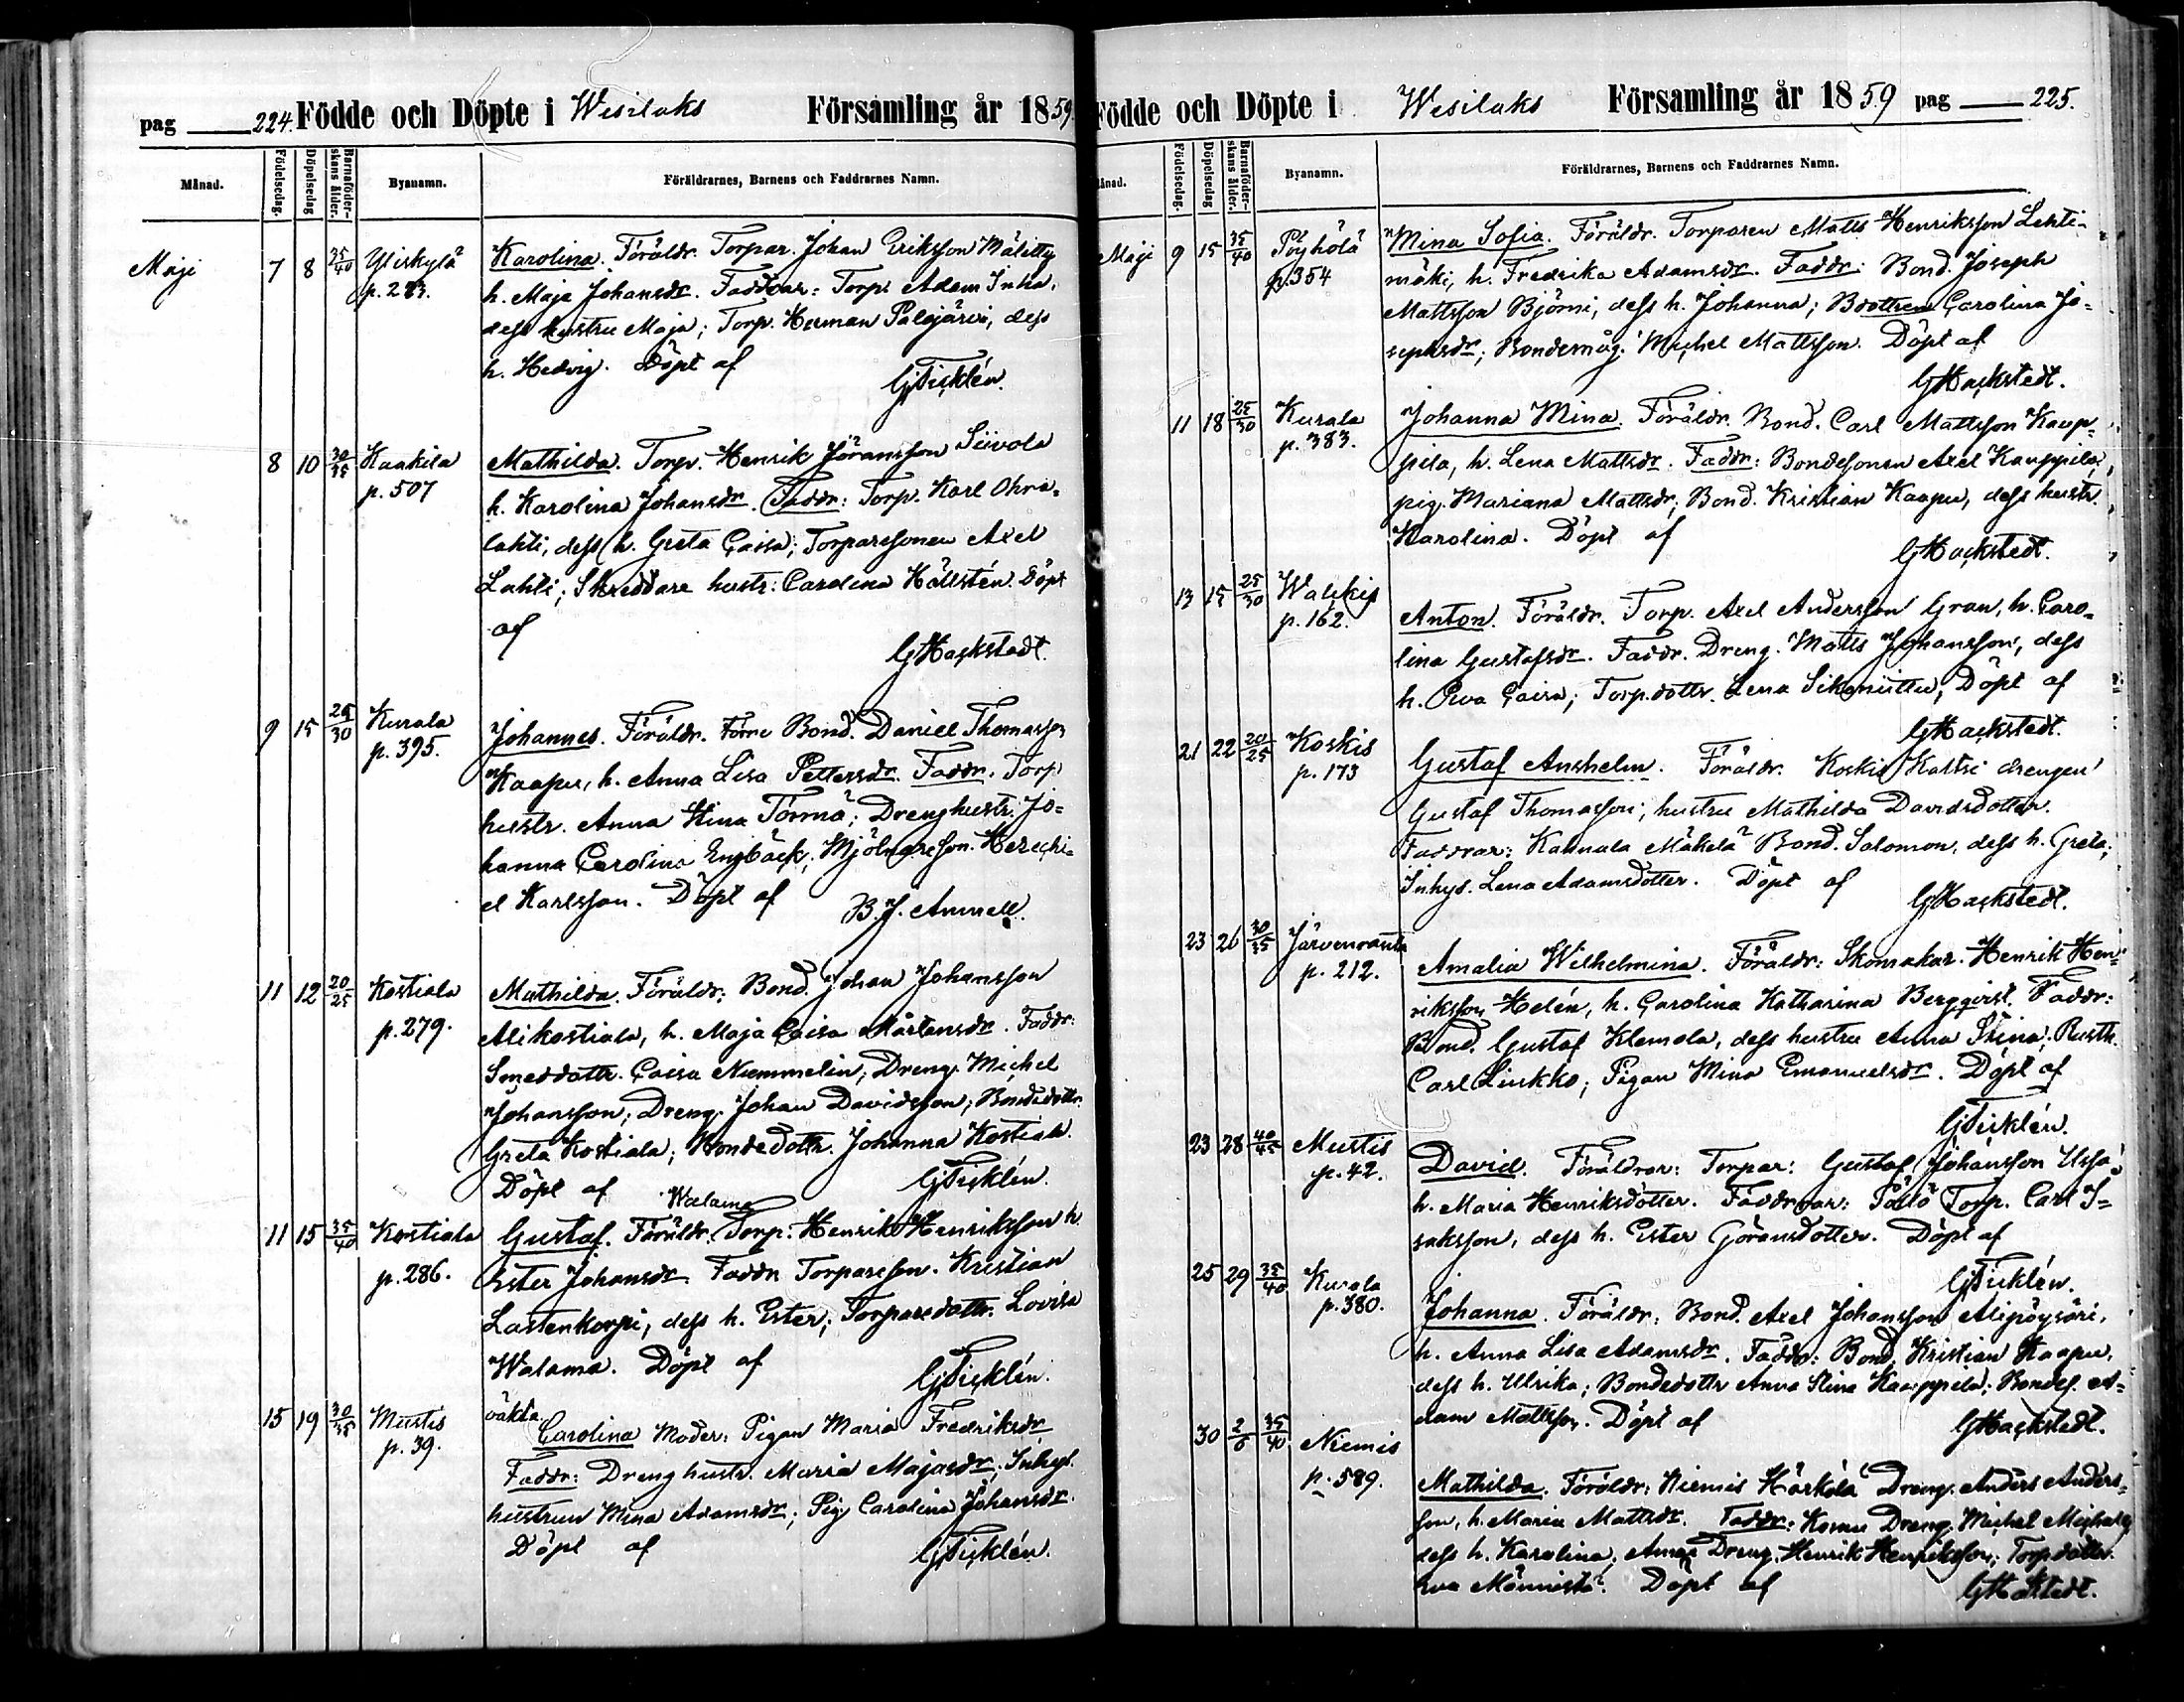 pag 224. Födde och Döpte i Wesilaks Församling år 1859.
Månad. Födelsedag. Döpelsedag Barnaföderskans ålder. Byanamn. Föräldrarnes, Barnens och Faddrarnes Namn.
Maji 7 8 35/40 Yliskylä Karolina. Föräldr. Torpar. Johan Eriksson Mälitty
p. 283. h. Maja Johansdr. Faddrar: Torp. Adam Inha,
dess hustru Maja; Torp. Herman Palojärvi, dess
h. Hedvig. Döpt af
G Ticklén.
8 10 30/35 Kaakila Mathilda. Torp. Henrik Jöransson Siivola
p. 507 h. Karolina Johansdr. Faddr: Torp. Karl Ohra-
lahti, dess h. Greta Caisa; Torparesonen Axel
Lahti; Skreddare hustr: Carolina Hällstén. Döpt
af
G Hackstedt.
9 15 25/30 Kurala Johannes. Föräldr. Förre Bond. Daniel Thomasson
p. 395. Kaapu, h. Anna Lisa Pettersdr. Faddr. Torp.
hustr. Anna Stina Törmä; Dreng hustr. Jo-
hanna Carolina Engbäck; Mjölnareson. Hesechi-
el Karlsson. Döpt af B. J. Annell.
11 12 20/25 Kostiala Mathilda. Föräldr: Bond. Johan Johansson
p. 279. Alikostiala, h. Maja Caisa Mårtensdr. Faddr:
Smeddottr. Caisa Nummelin; Dreng. Michel
Johansson; Dreng. Johan Davidsson; Bondedottr.
Greta Kostiala; Bondedottr. Johanna Kostiala.
Döpt af G Ticklén.
Walama
11 15 35/40 Kostiala Gustaf. Föräldr. Torp. Henrik Henriksson h.
p. 286. Ester Johansdr. Faddr. Torpareson. Kristian
Lastenkorpi, dess h. Ester; Torparedottr. Lovisa
Walama. Döpt af
G Ticklén.
oäkta
15 19 30/35 Mustis Carolina Moder: Pigan Maria Fredriksdr
p. 39. Faddr: Dreng hustr. Maria Majasdr; Inhys.
hustrun Mina Adamsdr; Pig. Carolina Johansdr.
Döpt af G Ticklén.
Födde och Döpte i Wesilaks Församling år 1859 pag 225.
Månad. Födelsedag. Döpelsedag Barnaföderskans ålder. Byanamn. Föräldrarnes, Barnens och Faddrarnes Namn.
Maji 9 15 35/40 Pöyhölä Mina Sofia. Föräldr. Torparen Matts Henriksson Lehti-
p. 354 mäki, h. Fredrika Adamsdr. Faddr: Bond. Joseph
Mattsson Björni, dess h. Johanna; Bdottren Carolina Jo-
sephsdr; Bondemåg. Michel Mattsson. Döpt af
G Hackstedt.
11 18 25/30 Kurala Johanna Mina. Föräldr. Bond. Carl Mattsson Kaup-
p. 383. pila, h. Lena Mattsdr. Faddr: Bondesonen Axel Kauppila,
pig. Mariana Mattsdr; Bond. Kristian Kaapu, dess hustr.
Karolina. Döpt af
G Hackstedt.
13 15 25/30 Walckis Anton. Föräldr. Torp. Axel Andersson Gran, h. Caro-
p. 162. lina Gustafsdr. Faddr. Dreng. Matts Johansson, dess
h. Eva Caisa; Torp.dottr. Lena Sikoniittu; Döpt af
G Hackstedt.
21 22 20/25 Koskis Gustaf Anshelm. Föräldr. Koskis Kattsi drengen
p. 173 Gustaf Thomasson, hustru Mathilda Davidsdotter.
Faddrar: Kannala Mäkelä Bond. Salomon, dess h. Greta;
Inhys. Lena Adamsdotter. Döpt af G Hackstedt.
23 26 30/35 Järvenranta Amalia Wilhelmina. Föräldr: Skomakar. Henrik Hen-
p. 212. riksson Helén, h. Carolina Katharina Bergqvist. Faddr:
Bond. Gustaf Klemola, dess hustru Anna Stina; Rusth.
Carl Liukko; Pigan Mina Emanuelsdr. Döpt af
G Ticklén.
23 28 40/45 Mustis David. Föräldrar: Torpar: Gustaf Johansson Ussa,
p. 42. h. Maria Henriksdotter. Faddrar: Pältö Torp. Carl I-
saksson, dess h. Ester Göransdotter. Döpt af
G Ticklén.
25 29 35/40 Kurala Johanna. Föräldr: Bond. Axel Johansson Alipöysäri,
p. 380. h. Anna Lisa Adamsdr. Faddr: Bond. Kristian Kaapu,
dess h. Ulrika; Bondedottr Anna Stina Kauppila; Bondes. A-
dam Mattsson. Döpt af G Hackstedt.
30 2/6 35/40 Niemis Mathilda. Föräldr: Niemis Härkölä Dreng. Anders Anders-
p. 589. son, h. Maria Mattsdr. Faddr: Komu Dreng. Michel Michels
dess h. Karolina; Dreng. Henrik Henriksson; Torpdotter.
Eva Männistö. Döpt af G Hackstedt.